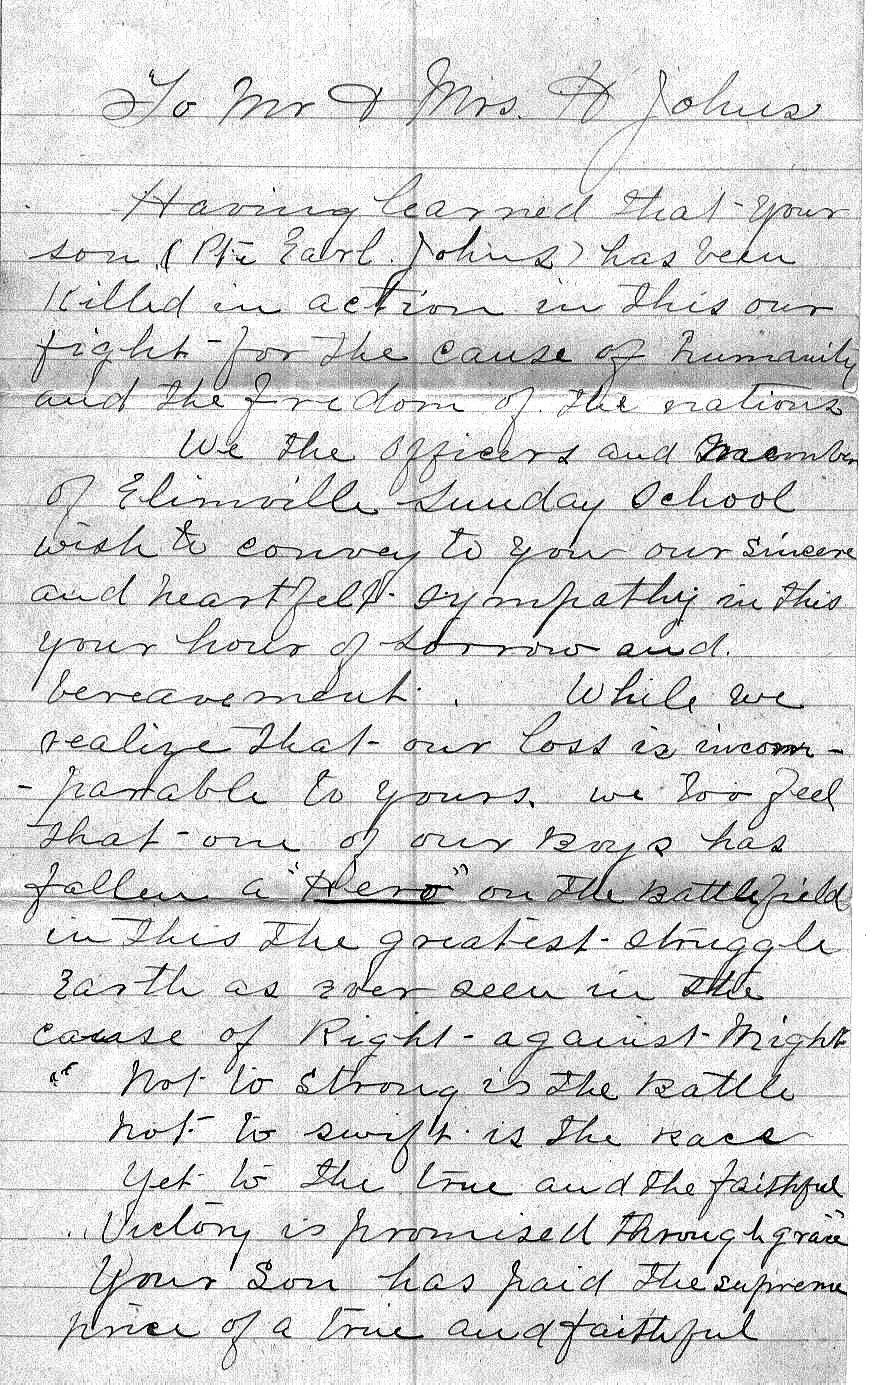 To Mr & Mrs. H Johns
Having learned that your
son (Pte Earl. Johns) has been
killed in action in this our
fight for the cause of humanity
and the fredom of the nations
We the officers and member
of Elimville Sunday School
wish to convey to you our sincere
and heartfelt sympathy in this
your hour of sorrow and.
bereavement. While we
realize that our loss is incom-
-parable to yours. we too feel
that one of our Boys has
fallen a "Hero" on the Battlefield
in this the greatest struggle
Earth as ever seen in the
cause of Right against Might
"Not to strong is the Battle
Not to swift is the Race
Yet to the true and the faithful
Victory is promised through grace"
Your Son has paid the supreme
price of a true and faithful